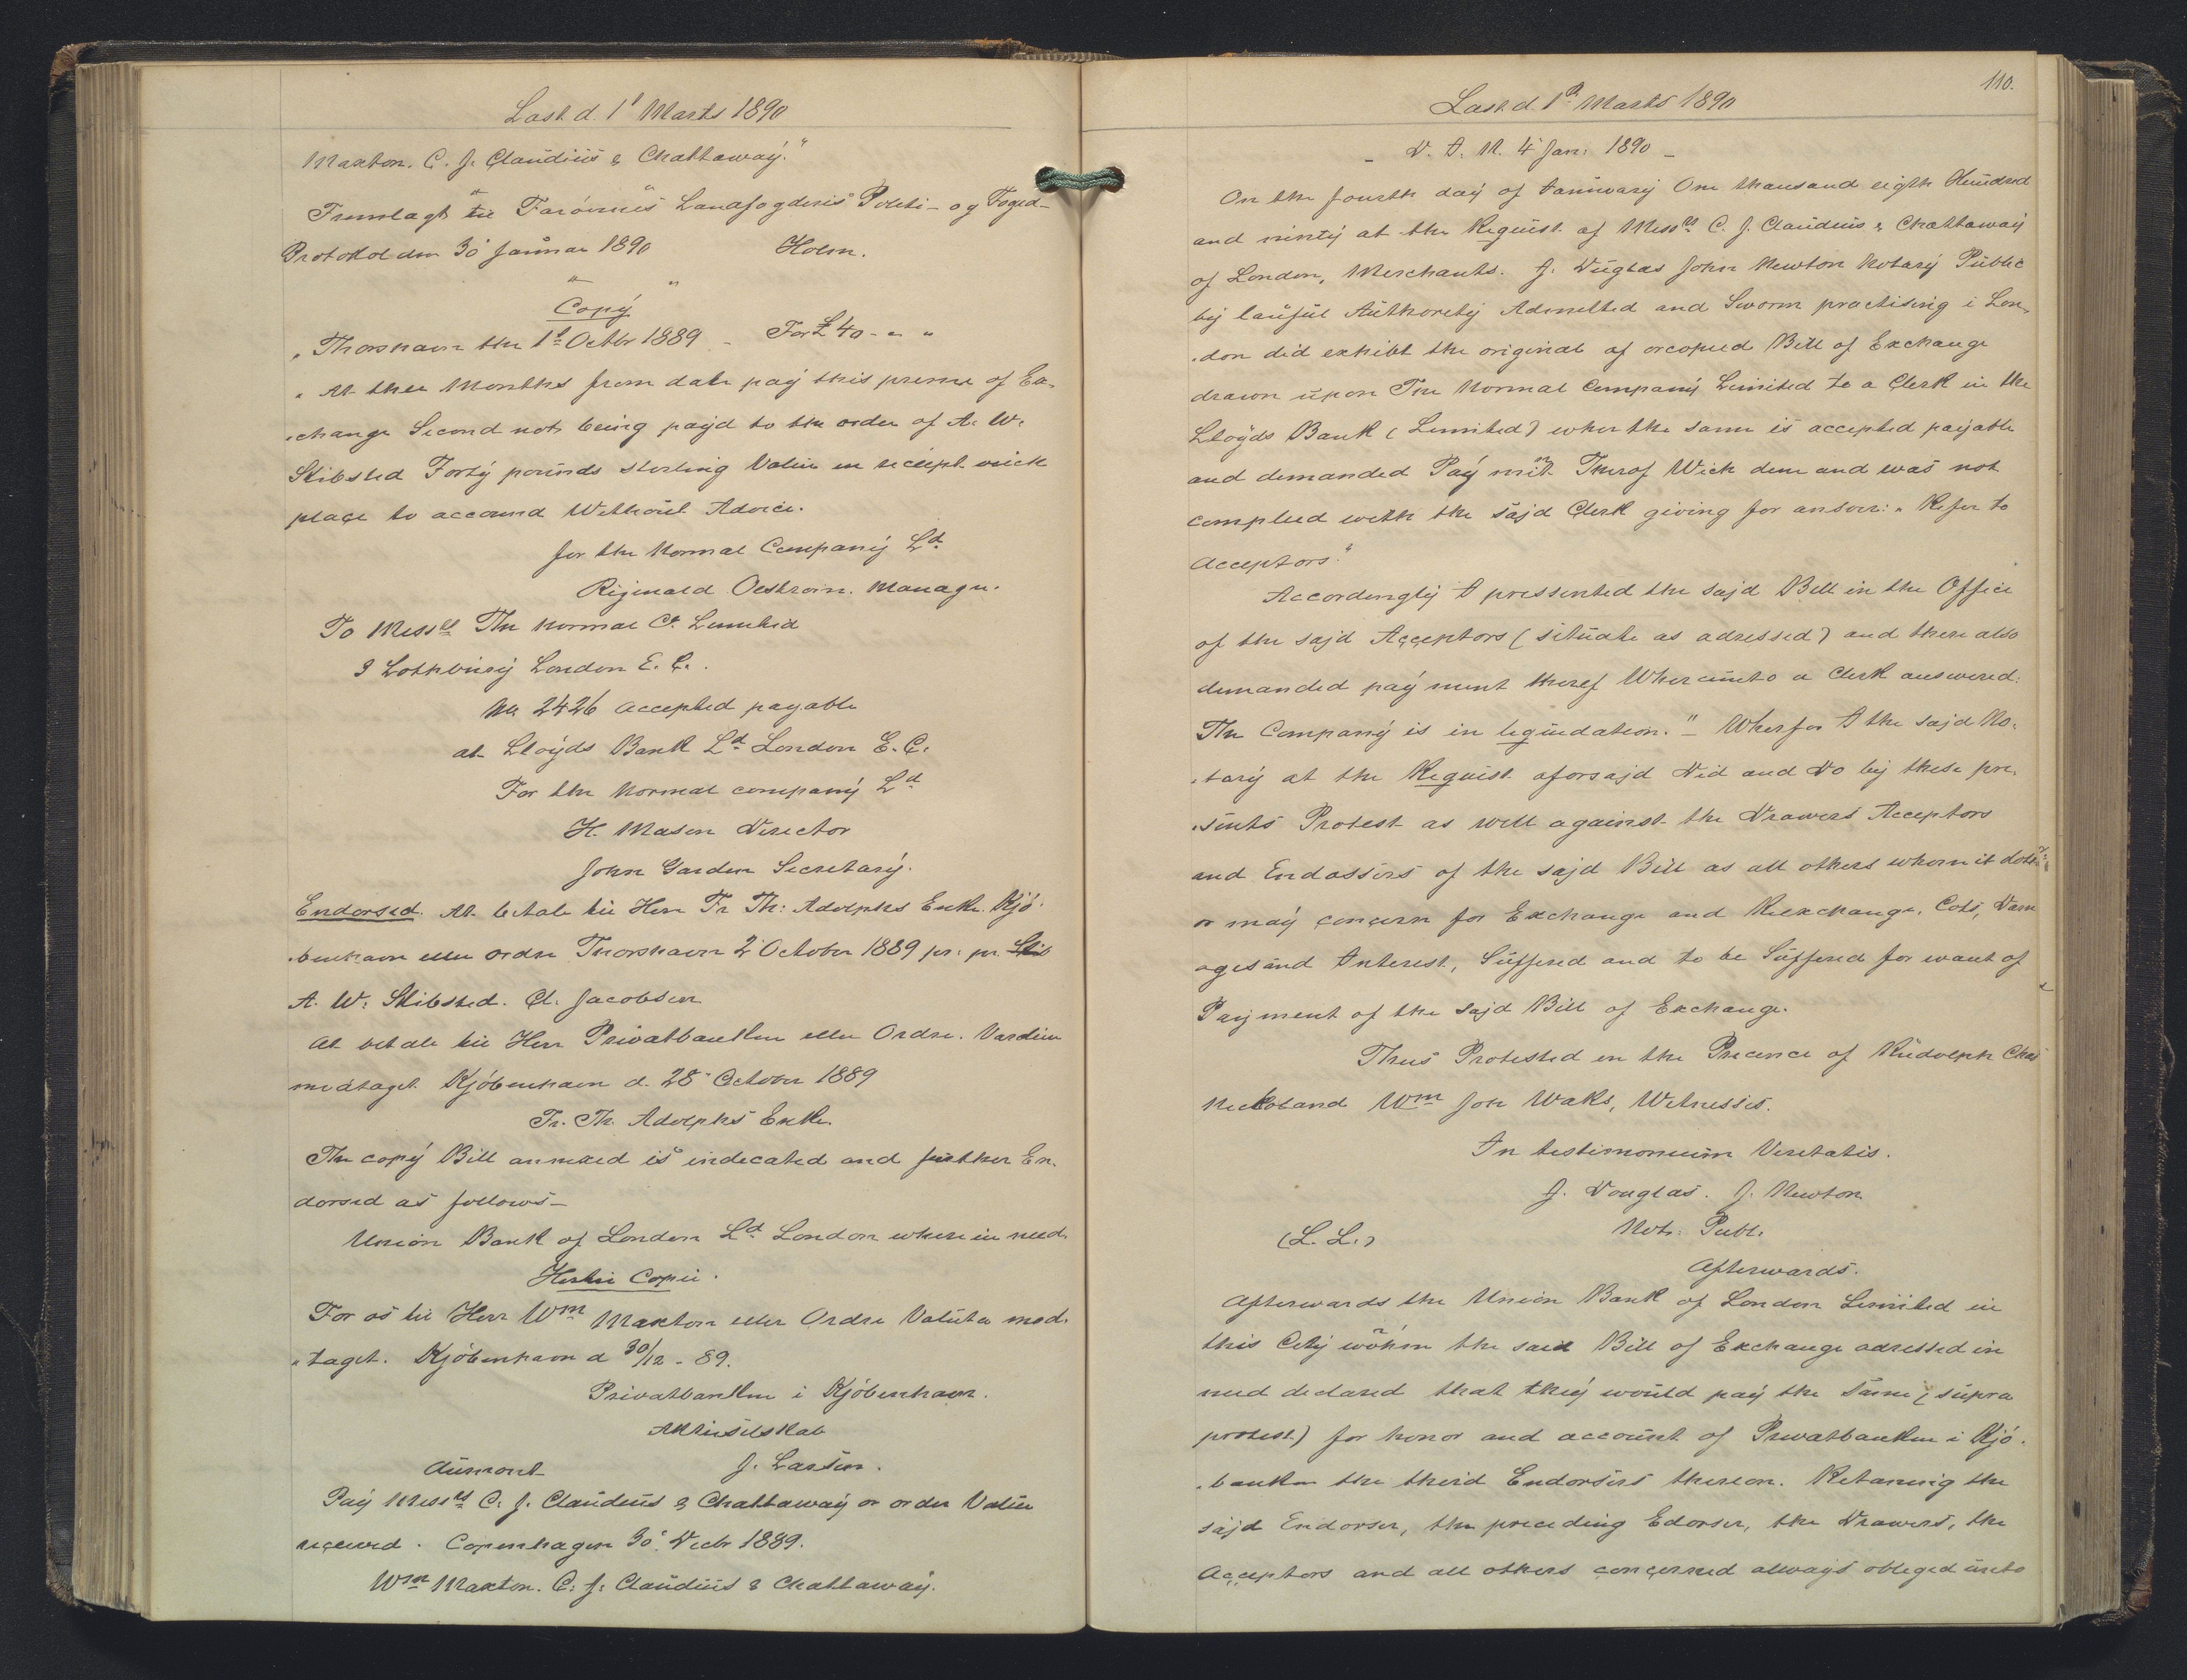 Last d. 1' Marts 1890
Maxton. C. J. Claudius & Chattaway."
Fremlagt til Farøernes Landfogderis Politi- og Foged-
Protokol den 30' Januar 1890 Holm.
" "
Copy
"Thorshavn the 1st Octbr 1889 - For £ 40 - " "
" At thee Months from date pay this preme of Ex-
change Second not being payd to the order of A. W.
Skibsted Forty pounds sterling Value in reciept wick
place to accound Without Advice.
for the Normal Company Ld
Riginald Oestrom. Manager.
To Messrs The Normal Co. Limited
3 Lothbury London E. C.
No 2426 accepted payable
at Lloyds Bank Ld London E. C.
For the Normal company Ld
H. Mason Director
John Garden Secretary.
Endorsed. At betale til Herr Fr. Th: Adolphs Enke. Kjø-
benhavn eller ordre Thorshavn 2' October 1889 pr. pr. Skib
A. W. Skibsted. Cl. Jacobsen
At betale til Herr Privatbanken eller Ordre. Værdien
modtaget. Kjøbenhavn d. 28' October 1889
Fr. Th. Adolphs Enke.
The copy Bill annexed is indecated and further En-
dorsed as follows -
Union Bank of London Ld London where in need.
Hertil Copii.
For os til Herr Wm Maxton eller Ordre Valuta mod-
"taget. Kjøbenhavn d 30/12 - 89.
Privatbanken i Kjøbenhavn.
Aktieselskab
Aumont J. Larsen.
Pay Messrs C. J. Claudius & Chattaway or order Value
reçeived. Copenhagen 30' Decbr 1889.
Wm Maxton. C. J. Claudius & Chattaway.
110.
Last d. 1st Marts 1890
- D. J. N. 4' Jan: 1890 -
On the fourth day of January One thousand eigth Hundred
and ninty at the Request of Messrs C. J. Claudius & Chattaway
of London, Merchants. J. Duglas John Newton Notary Public
by lauful Authority Admitted and Sworn practising i Lon-
don did exhibt the original of orcopied Bill of Exchange
drawn upon The Normal Company Limited to a Clerk in the
Lloyds Bank (Limited) wher the same is accepted payable
and demanded Payment Therof Wich dem and was not
complied with the sajd Clerk giving for answer: " Refer to
Acceptors."
Accordingly I pressented the sajd Bill in the Office
of the sajd Acçeptors (situate as adressed) and there also
demanded payment theref Whereunto a Clerk answered:
The Company is in leqiudation." - Wherfor I the sajd No-
tary at the Request aforsajd Did and Do by these pre-
sents Protest as well against the Drawers Acceptors
and Endossers of the sajd Bill as all others whom it doth
or may conçern for Exchange and Reexchange, Cots, Dam
ages and Interest, Suffered and to be Suffered for want of
Payment of the sajd Bill of Exchange.
Thus Protested in the Precence of Rudolph Chas
Wm Joh Waks, Witnesses.
In testimonium Veritatis.
J. Douglas. J. Newton
(L. L.) Not: Publ.
Afterwards.
Afterwards the Union Bank of London Limited in
this City wohm the said Bill of Exchange adressed in
need declared that they would pay the same (supra
protest) for honor and account of Privatbanken i Kjø-
banken the therd Endorsers thereon. Retaning the
sajd Endorser, the preceding Edorser, the Drawers, the
Acçeptors and all others conçerned always obleged unto